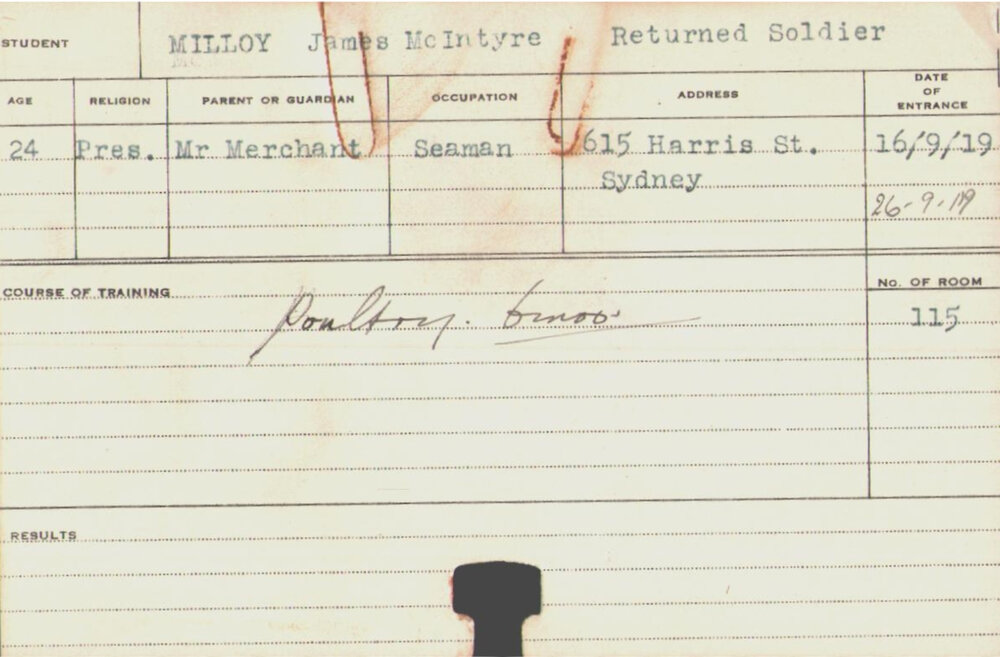 STUDENT MILLOY James McIntyre Returned Soldier
AGE RELIGION PARENT OR GUARDIAN OCCUPATION ADDRESS DATE OF ENTRANCE
24 Pres. Mr Merchant Seaman 615 Harris St. 16/9/19
Sydney
26-9-19
COURSE OF TRAINING No. OF ROOM
Poultry. 6mos. 115
RESULTS